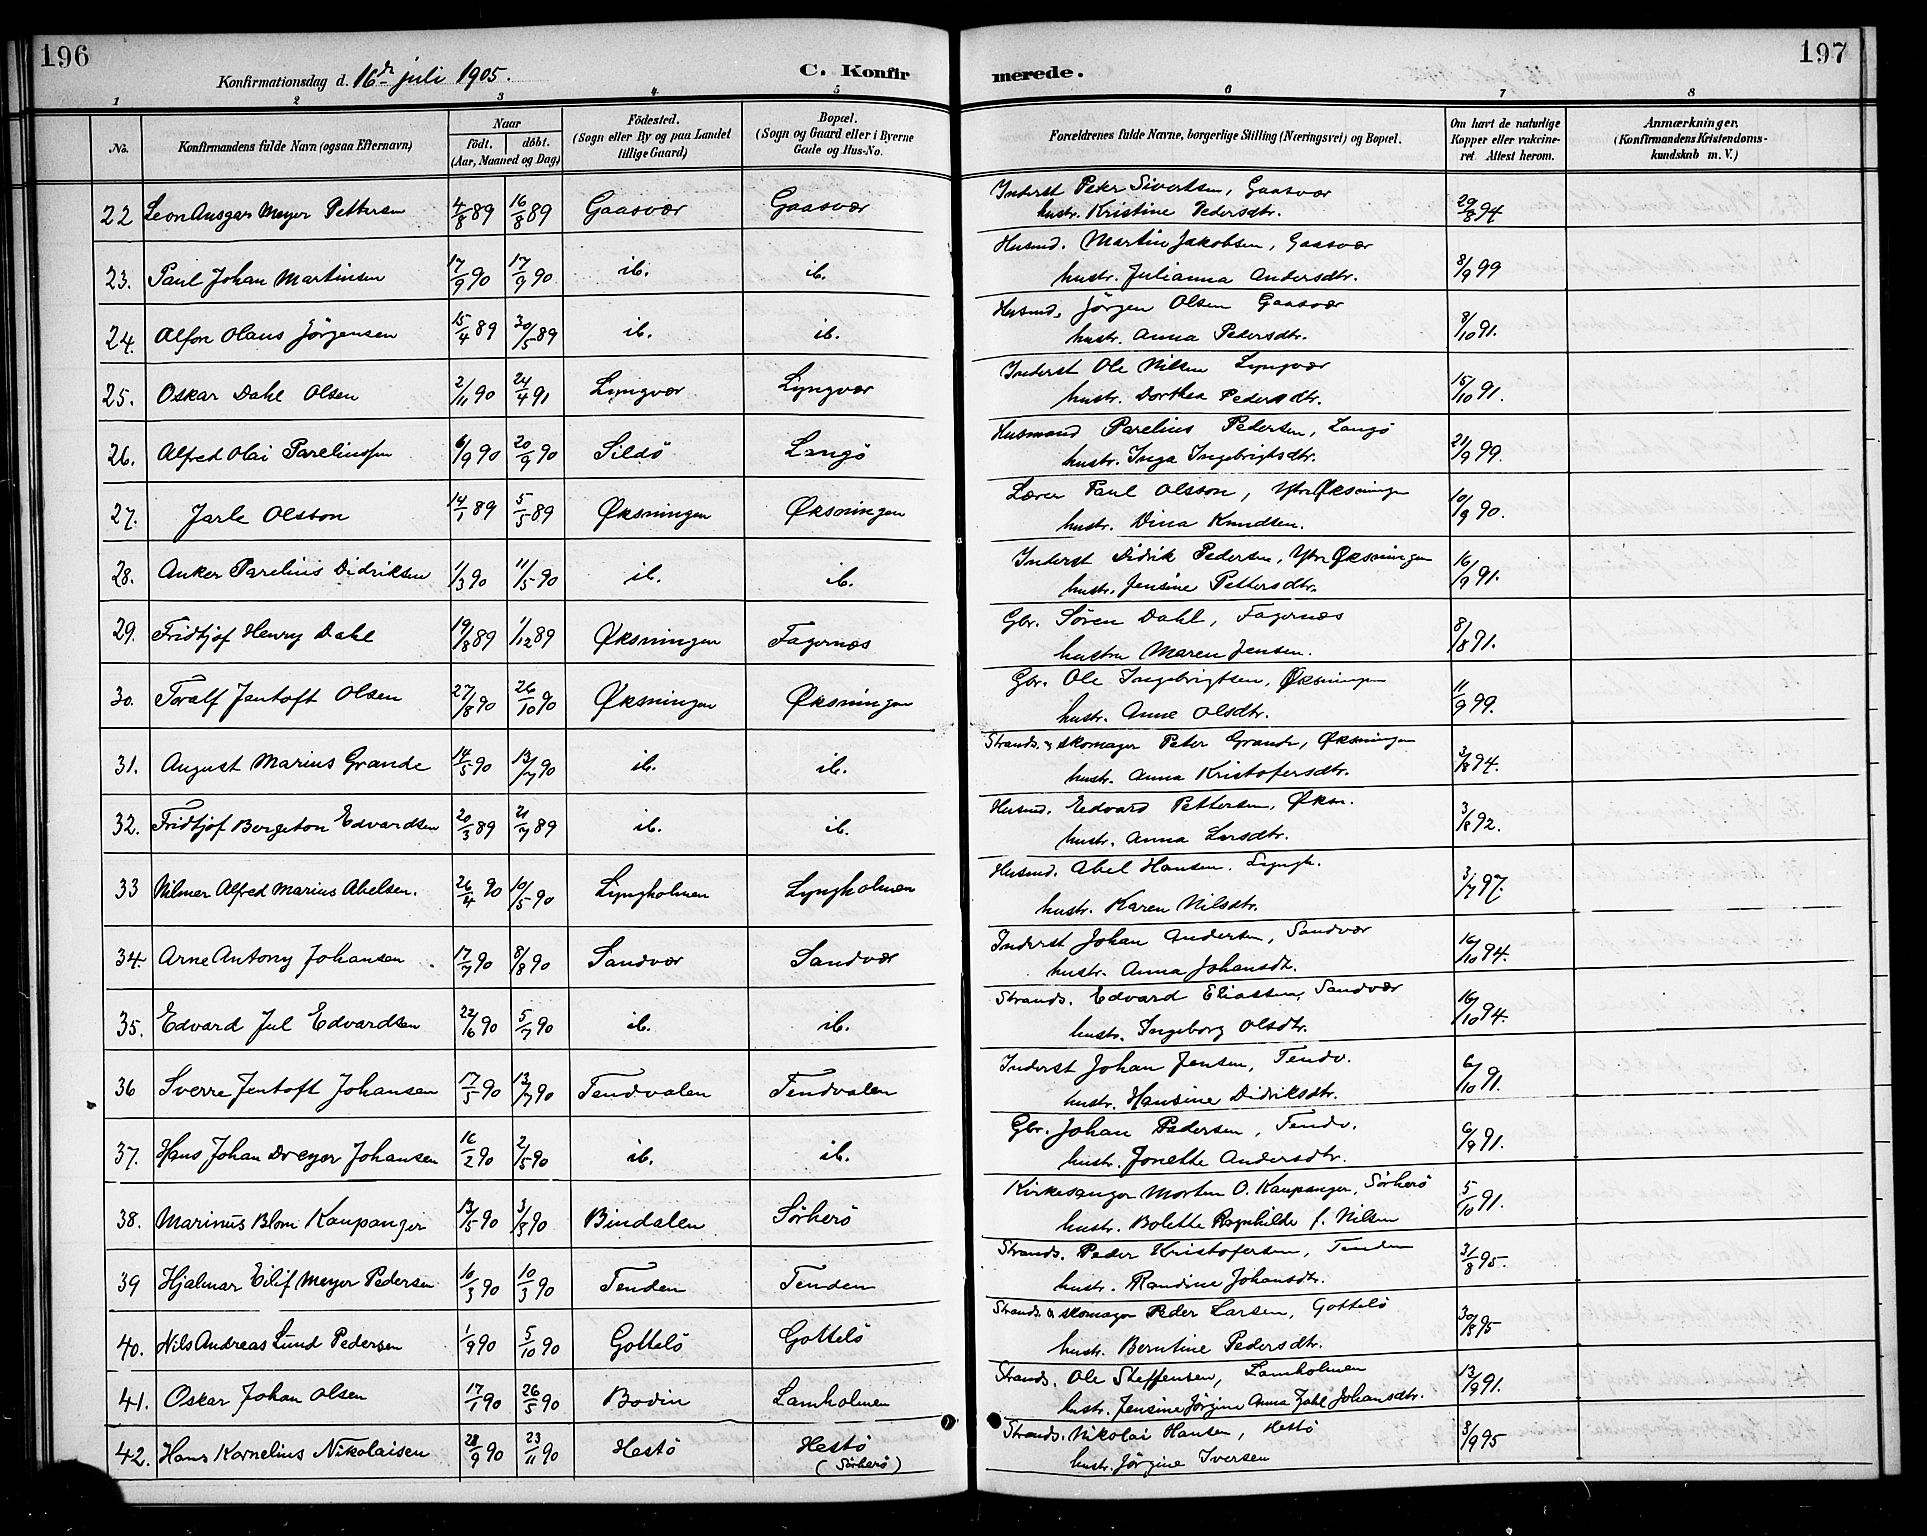 196
197
Konfirmationsdag d. 16de juli 1905.
C. Konfir
merede.
1 2 3 4 5 6 7 8
No. Konfirmandens fulde Navn (ogsaa Efternavn) Naar født. døbt. (Aar, Maaned og Dag) Fødested. (Sogn eller By og paa Landet tillige Gaard) Bopæl. (Sogn og Gaard eller i Byerne Gade og Hus-No. Forældrenes fulde Navne, borgerlige Stilling (Næringsvei) og Bopæl. Om havt de naturlige Kopper eller vakcineret. Attest herom. Anmærkninger. (Konfirmandens Kristendomskundskab m. V.)
22 Leon Ansgar Meyer Pettersen 4/8 89 16/8 89 Gaasvær Gaasvær Inderst Peder Sivertsen, Gaasvær 29/8 94
hustr. Kristine Pedersdtr.
23. Paul Johan Martinsen 17/9 90 17/9 90 ib. ib. Husmd. Martin Jakobsen, Gaasvær 8/9 99
hustr. Julianna Andersdtr.
24. Alfon Olaus Jørgensen 15/4 89 30/5 89 ib. ib. Husmd. Jörgen Olsen Gaasvær 8/10 91.
hustr. Anna Pedersdtr.
25. Oskar Dahl Olsen 2/11 90 24/4 91 Lyngvær Lyngvær Inderst Ole Nilsen Lyngvær 15/10 91.
hustr. Dorthea Pedersdtr.
26. Alfred Olai Pareliussen 6/9 90 20/9 90 Sildö Langö Husmand Parelius Pedersen, Langö 21/9 99.
hustr. Inga Ingebrigtsdtr.
27. Jarle Olsson 14/1 89 5/5 89 Øksningen Øksningen Lærer Paul Olsson, Ytre Øksningen 10/9 90.
hustr. Dina Knudsen.
28. Anker Parelius Didriksen 11/3 90 11/5 90 ib. ib. Inderst Didrik Pedersen, Ytre Øksningen 16/9 91.
hustr. Jensine Pettersdtr.
29. Fridtjof Henry Dahl 19/8 89 1/12 89 Øksningen Fagernæs Gbr. Sören Dahl, Fagernæs 8/8 91.
hustru Maren Jensen.
30. Toralf Jentoft Olsen 27/8 90 26/10 90 Øksningen Øksningen Gbr. Ole Ingebrigtsen, Øksningen 11/9 99.
hustr. Anne Olsdtr.
31. August Marius Grande 14/5 90 13/7 90 ib. ib. Strands. & skomager Peter Grande, Øksningen 3/8 94.
hustr. Anna Kristofersdtr.
32. Fridtjof Bergeton Edvardsen 20/3 89 21/7 89 ib. ib. Husmd. Eedvard Pettersen, Øksn. 3/8 92.
hustr. Anna Larsdtr.
33 Nilmer Alfred Marius Abelsen. 26/4 90 10/5 90 Lyngholmen Lyngholmen Husmd. Abel Hansen. Lyngh. 3/7 97.
hustr. Karen Nilsdtr.
34. Arne Antony Johansen 17/7 90 8/8 90 Sandvær Sandvær Inderst Johan Andersen, Sandvær 16/10 94.
hustr. Anna Johansdtr.
35. Edvard Jul Edvardsen 22/6 90 5/7 90 ib. ib. Strands. Edvard Eliassen, Sandvær 16/10 94.
hustr. Ingeborg Olsdtr.
36 Sverre Jentoft Johansen 17/5 90 13/7 90 Tendvalen Tendvalen Inderst Johan Jensen, Tendv. 6/10 91.
hustr. Hansine Didriksdtr.
37. Hans Johan Dreyer Johansen 16/2 90 2/5 90 ib. ib. Gbr. Johan Pedersen, Tendv. 6/9 91.
hustr. Jonette Andersdtr.
38. Marinus Blom Kaupanger 13/5 90 3/8 90 Bindalen Sörherö Kirkesanger Morten O. Kaupanger, Sörherö 5/10 91.
hustr. Bolette Ragnhilde f. Nilsen
39 Hjalmar Eilif Meyer Pedersen 10/3 90 10/3 90 Tenden Tenden Strands. Peder Kristofersen, Tenden 31/8 95.
hustr. Randine Johansdtr.
40. Nils Andreas Lund Pedersen 1/9 90 5/10 90 Gottelö Gottelö Strands. & skomager Peder Larsen, Gottelö 30/8 95
hustr. Berntine Pedersdtr.
41. Oskar Johan Olsen 17/1 90 26/5 90 Bodin Lamholmen Strands. Ole Steffensen, Lamholmen 13/9 91.
hustr. Jensine Jörgine Anna Johansdtr.
42. Hans Kornelius Nikolaisen 28/9 90 23/11 90 Hestö Hestö Strands. Nikolai Hansen, Hestö 3/9 95
(Sörherö) hustr. Jörgine Iversen